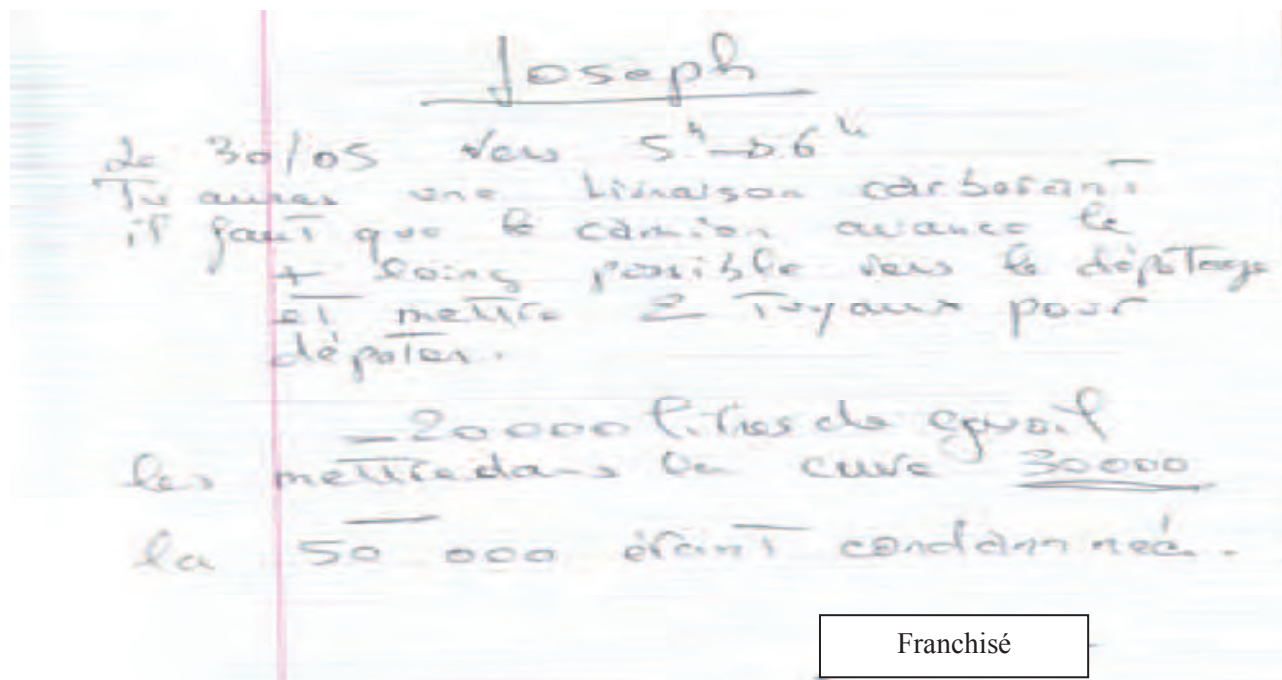 Joseph
Le 30/05 vers 5h → 6h
Tu auras une livraison carburant
il faut que le camion avance le
+ loing possible vers le dépotage
et mettre 2 Tuyaux pour
dépoter.
- 20000 litres de gasoil
les mettre dans la cuve 30000
la 50 000 étant condamnnée.
Franchisé